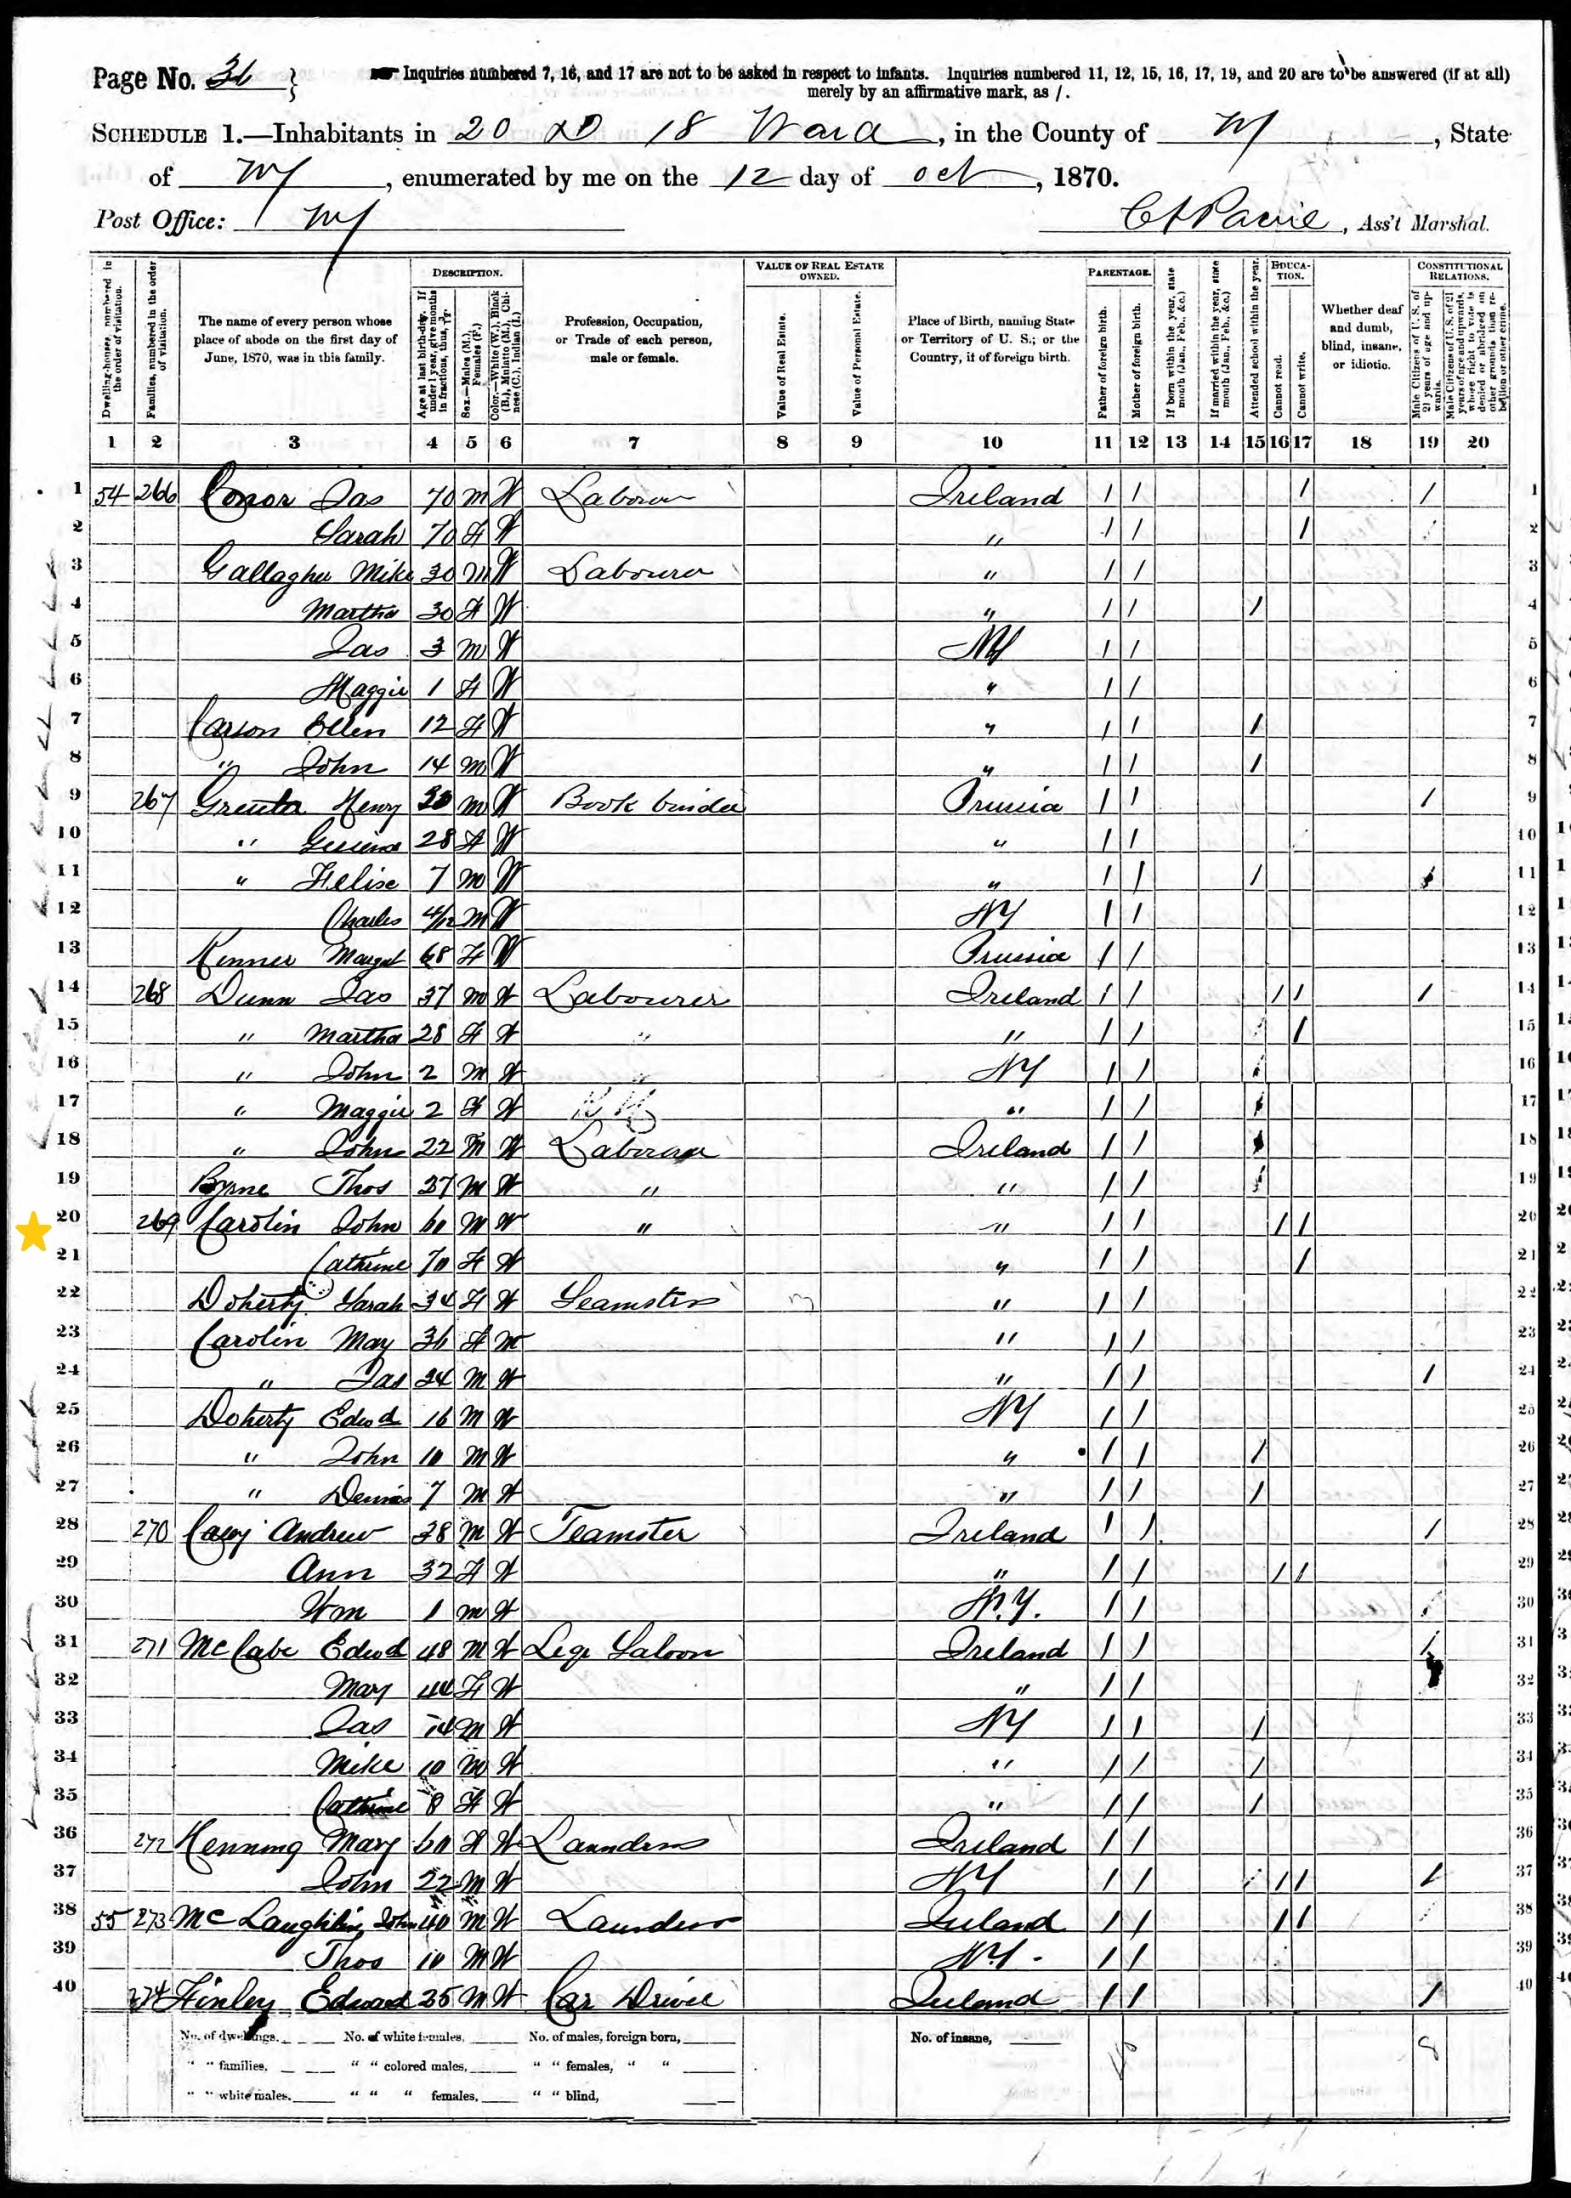 Page No. 36 } Inquiries numbered 7, 16, and 17 are not to be asked in respect to infants. Inquiries numbered 11, 12, 15, 16, 17, 19, and 20 are to be answered (if at all)
merely by an affirmative mark, as /.
SCHEDULE 1.—Inhabitants in 20 ED 18 Ward, in the County of NY, State
of NY, enumerated by me on the 12 day of Oct, 1870.
Post Office: NY , Ass't Marshal.
DESCRIPTION. VALUE OF REAL ESTATE OWNED. PARENTAGE. EDUCATION. CONSTITUTIONAL RELATIONS.
Dwelling-houses, numbered in the order of visitation.
Families, numbered in the order of visitation.
The name of every person whose place of abode on the first day of June, 1870, was in this family.
Age at last birth-day. If under 1 year, give months in fractions, thus, 3/12
Sex.—Males (M.), Females (F.)
Color.—White (W.), Black (B.), Mulatto (M.), Chinese (C.), Indian (I.)
Profession, Occupation, or Trade of each person, male or female.
Value of Real Estate.
Value of Personal Estate.
Place of Birth, naming State or Territory of U. S.; or the Country, if of foreign birth.
Father of foreign birth.
Mother of foreign birth.
If born within the year, state month (Jan., Feb., &c.)
If married within the year, state month (Jan., Feb., &c.)
Attended school within the year.
Cannot read.
Cannot write.
Whether deaf and dumb, blind, insane, or idiotic.
Male Citizens of U. S. of 21 years of age and upwards.
Male Citizens of U. S. of 21 years of age and upwards, whose right to vote is denied or abridged on other grounds than rebellion or other crime.
1 2 3 4 5 6 7 8 9 10 11 12 13 14 15 16 17 18 19 20
1 54 266 Conor Jas 70 M W Labourer Ireland / / / / 1
2 Sarah 70 F W " / / / 2
3 Gallagher Mike 30 M W Labourer " / / 3
4 Martha 30 F W " / / / 4
5 Jas 3 M W NY / / 5
6 Maggie 1 F W " / / 6
7 Carson Ellen 12 F W " / / / 7
8 " John 14 M W " / / / 8
9 267 Henry M W Book binder Prussia / / / 9
10 " 28 F W " / / 10
11 " Felise 7 M W " / / / 11
12 Charles 4/12 M W NY / / 12
13 Kenner Margat 68 F W Prussia / / 13
14 268 Dunn Jas 37 M W Labourer Ireland / / / / / 14
15 " Martha 28 F W " / / / 15
16 " John 2 M W NY / / 16
17 " Maggie 2 F W " / / 17
18 " John 22 M W Labourer Ireland / / 18
19 Byrne Thos 37 M W " " / / 19
20 269 Carolin John 60 M W " " / / / / 20
21 Cathrine 70 F W " / / / 21
22 Doherty Sarah 34 F W Seamstress " / / 22
23 Carolin May 36 F W " / / 23
24 " Jas 24 M W " / / / 24
25 Doherty Edwd 16 M W NY / / 25
26 " John 10 M W " / / / 26
27 " Dennis 7 M W " / / / 27
28 270 Andrew 38 M W Teamster Ireland / / / 28
29 Ann 32 F W " / / / / 29
30 Wm 1 M W N.Y. / / 30
31 271 McCabe Edwd 48 M W Saloon Ireland / / / 31
32 May 44 F W " / / 32
33 Jas 14 M W NY / / / 33
34 Mike 10 M W " / / / 34
35 Cathrine 8 F W " / / / 35
36 272 Henning Mary 60 F W Laundress Ireland / / 36
37 John 22 M W NY / / / / / 37
38 55 273 McLaughlin John 40 M W Laundress Ireland / / / / 38
39 Thos 10 M W N.Y. / / 39
40 274 Finley Edward 35 M W Car Driver Ireland / / / 40
No. of dwellings, No. of white females, No. of males, foreign born, No. of insane,
" " families, " " colored males, " " females, " " 8
" " white males, " " " females, " " blind,